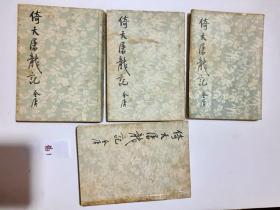 倚天屠龍記 金庸
倚天屠龍記 金庸
倚天屠龍記 金庸
倚天屠龍記 金庸